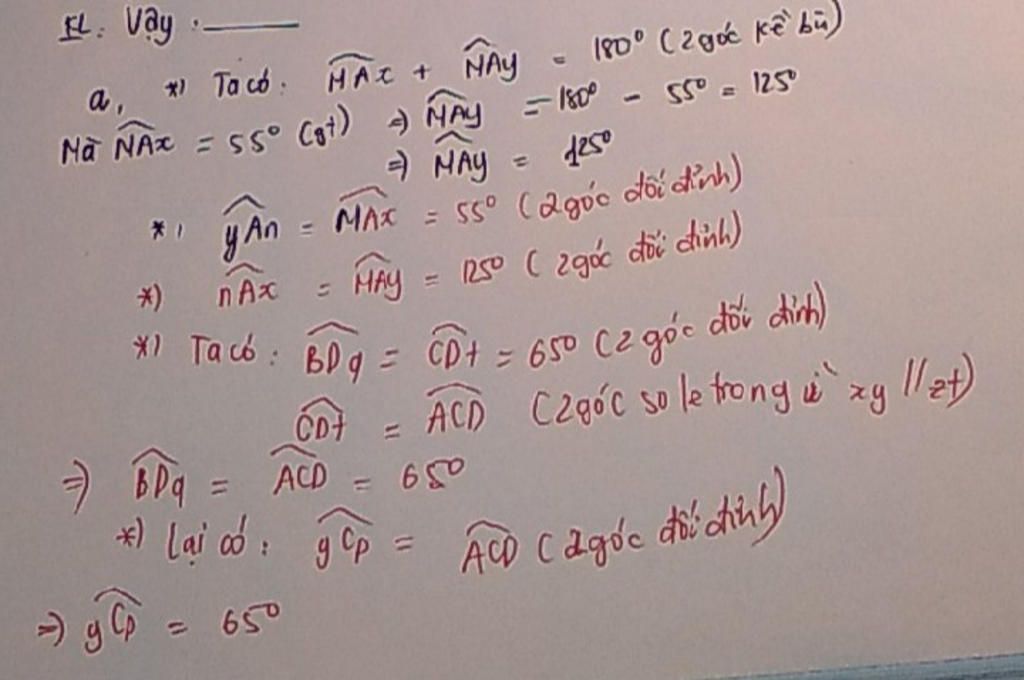 KL: Vậy :
a, *) Ta có: MAx + MAy = 180° (2 góc kề bù)
Mà MAx = 55° (gt) => MAy = 180° - 55° = 125°
=> MAy = 125°
*) yAn = MAx = 55° (2 góc đối đỉnh)
*) nAx = MAy = 125° (2 góc đối đỉnh)
*) Ta có: BDq = CDt = 65° (2 góc đối đỉnh)
CDt = ACD (2 góc so le trong vì xy // zt)
=> BDq = ACD = 65°
*) Lại có: yCp = ACD (2 góc đối đỉnh)
=> yCp = 65°